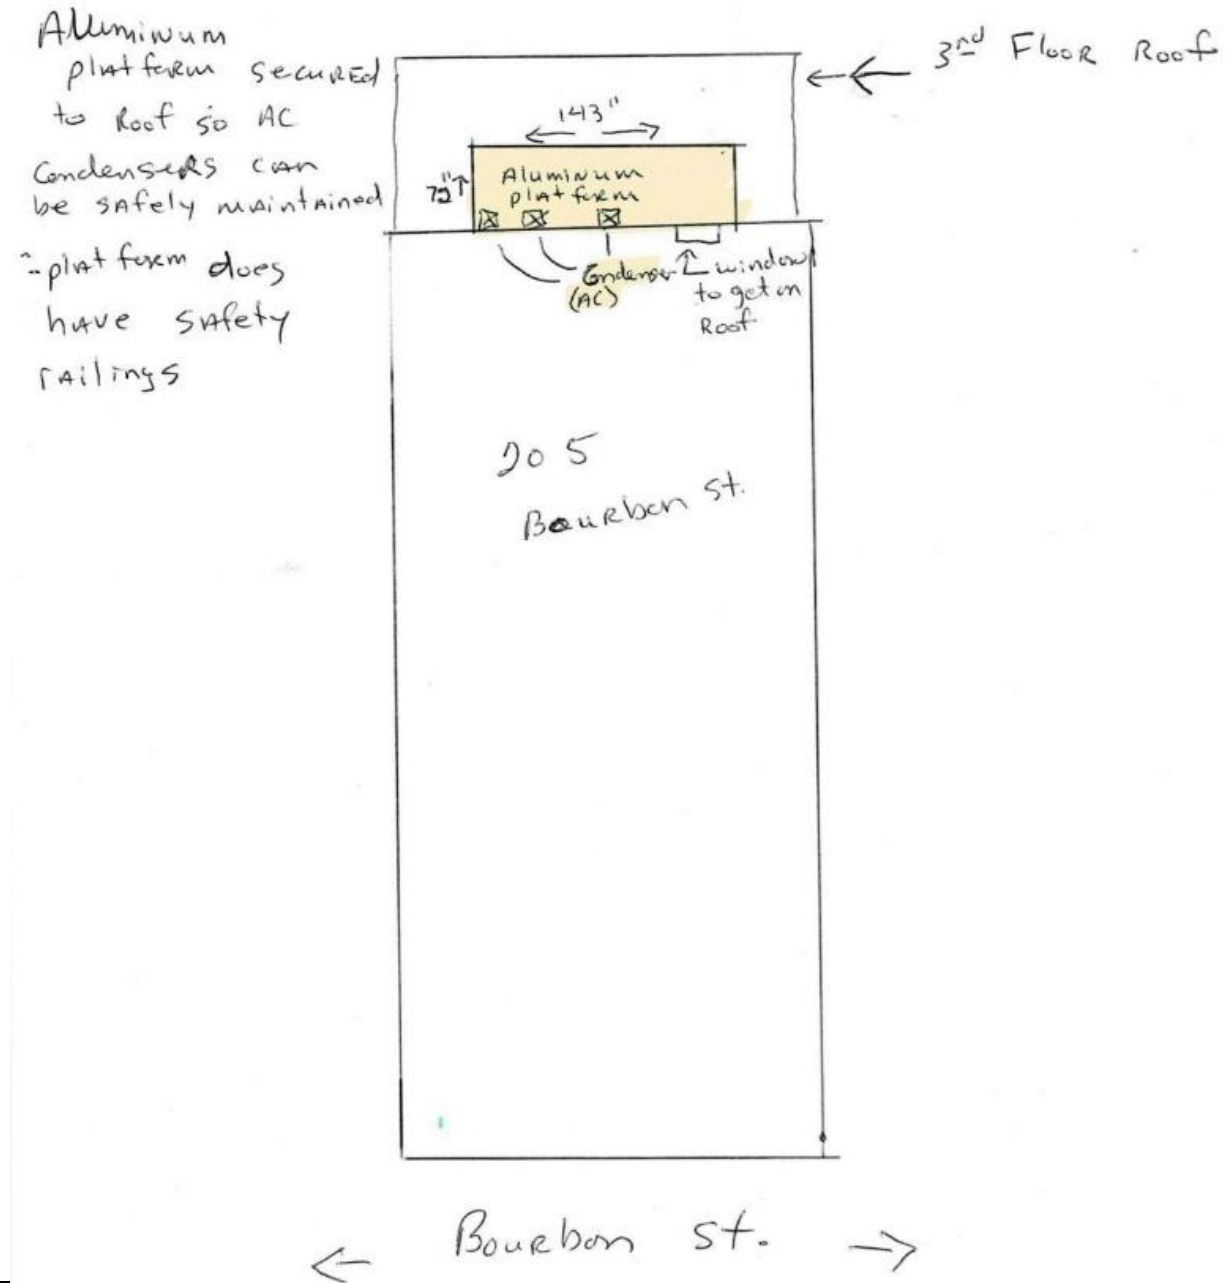 Aluminum
platform secured
to Roof so AC
Condensers can
be safely maintained
platform does
have safety
railings
3rd Floor Roof
143"
72"
Aluminum
platform
Condenser
(AC)
window
to get on
Roof
205
Bourbon St.
Bourbon St.